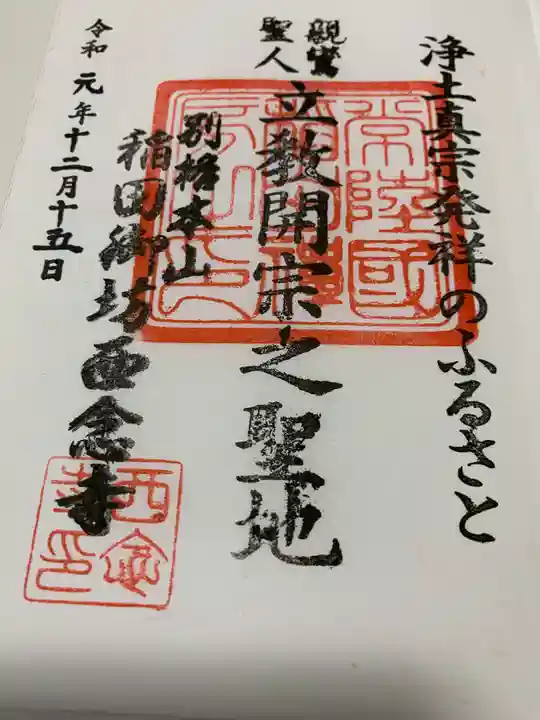 浄土真宗発祥のふるさと
親鸞
聖人
立教開宗之聖地
別格本山
稲田御坊西念寺
令和元年十二月十五日
常陸國
西念
寺印